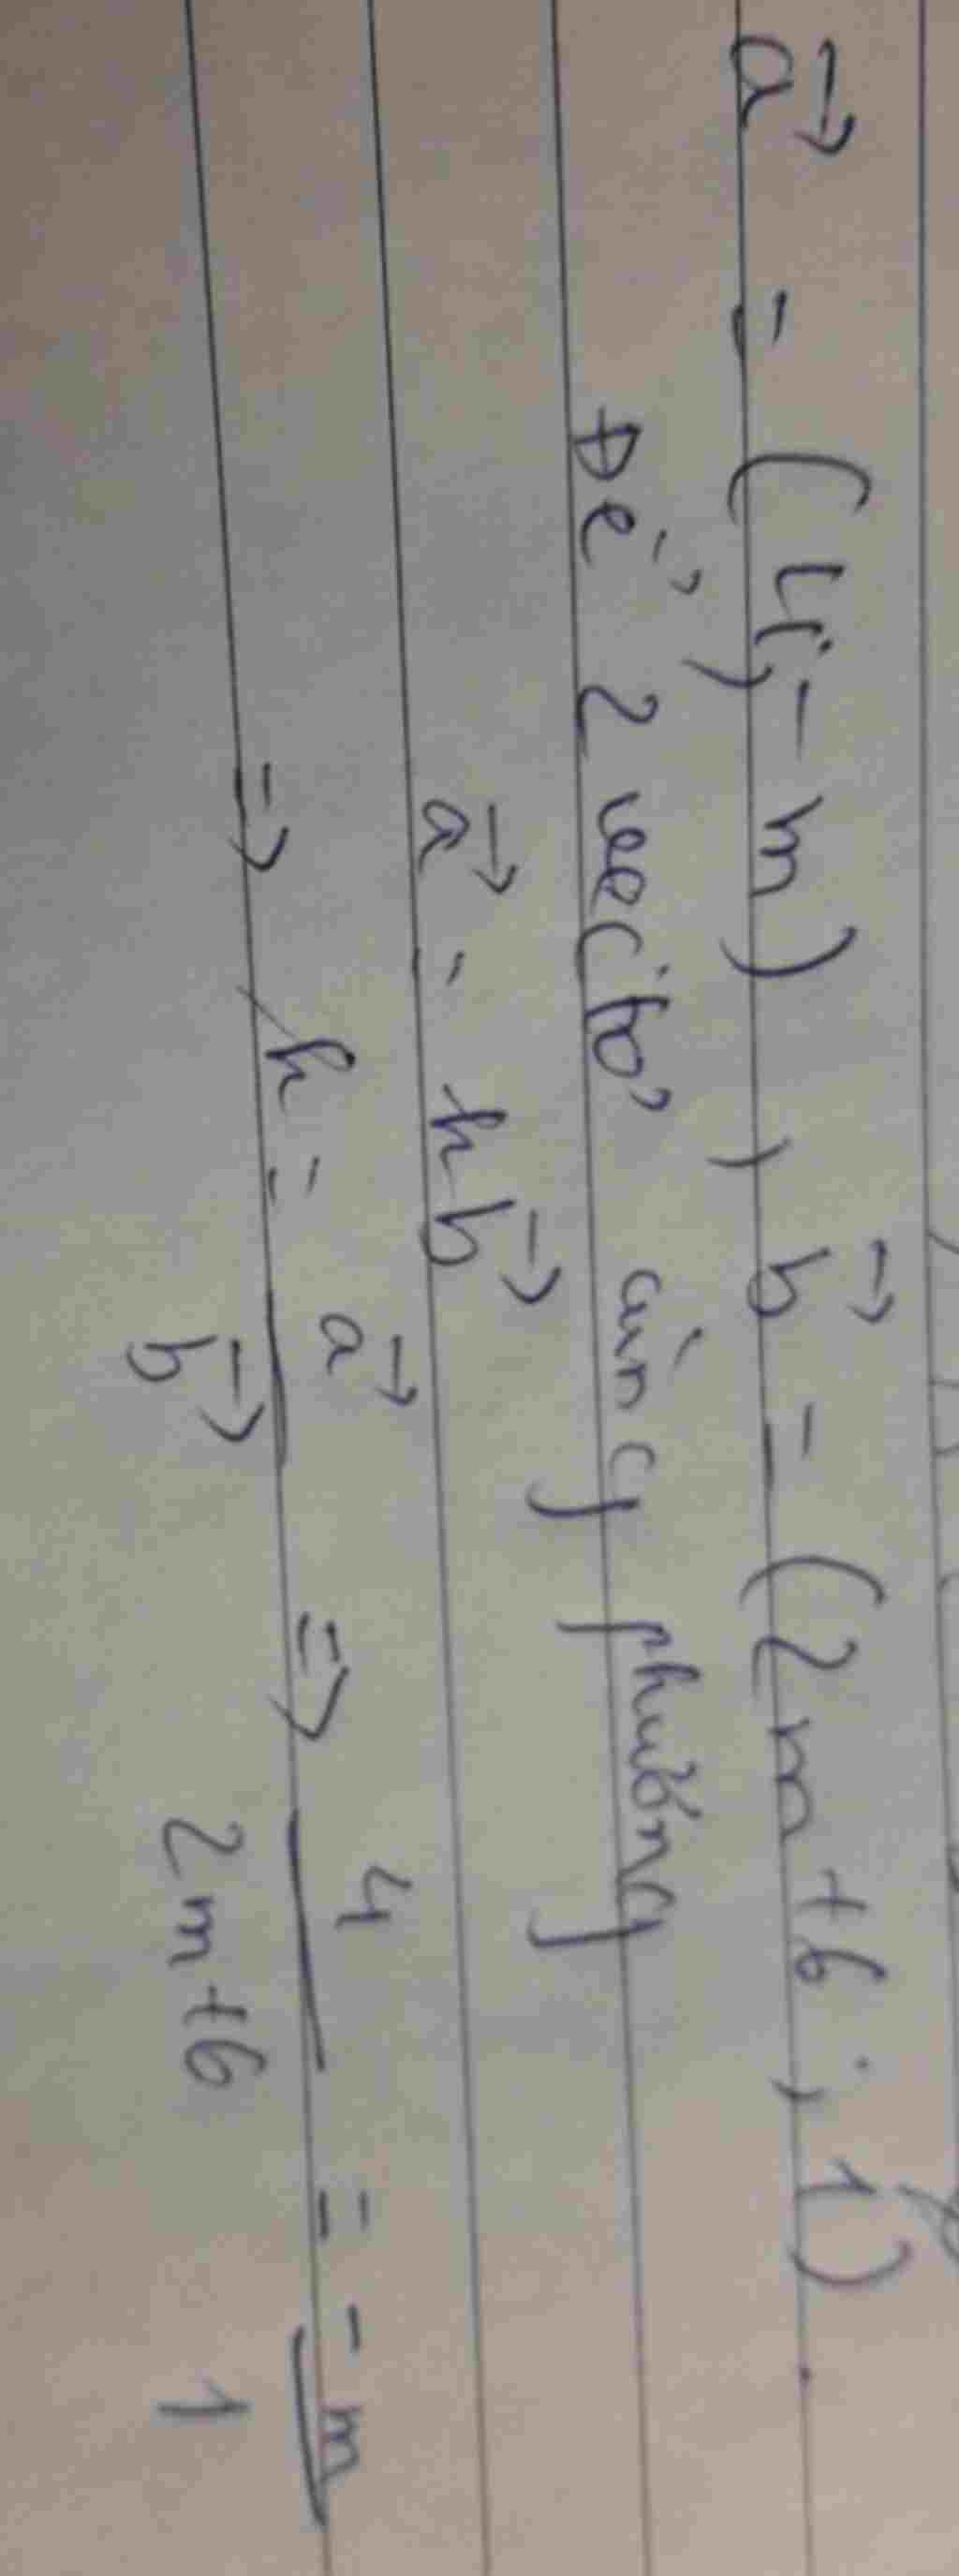 a→ = (4; -m), b→ = (2m+6; 1).
Để 2 vectơ cùng phương
a→ = kb→
=> k = a→/b→ => 4/2m+6 = -m/1